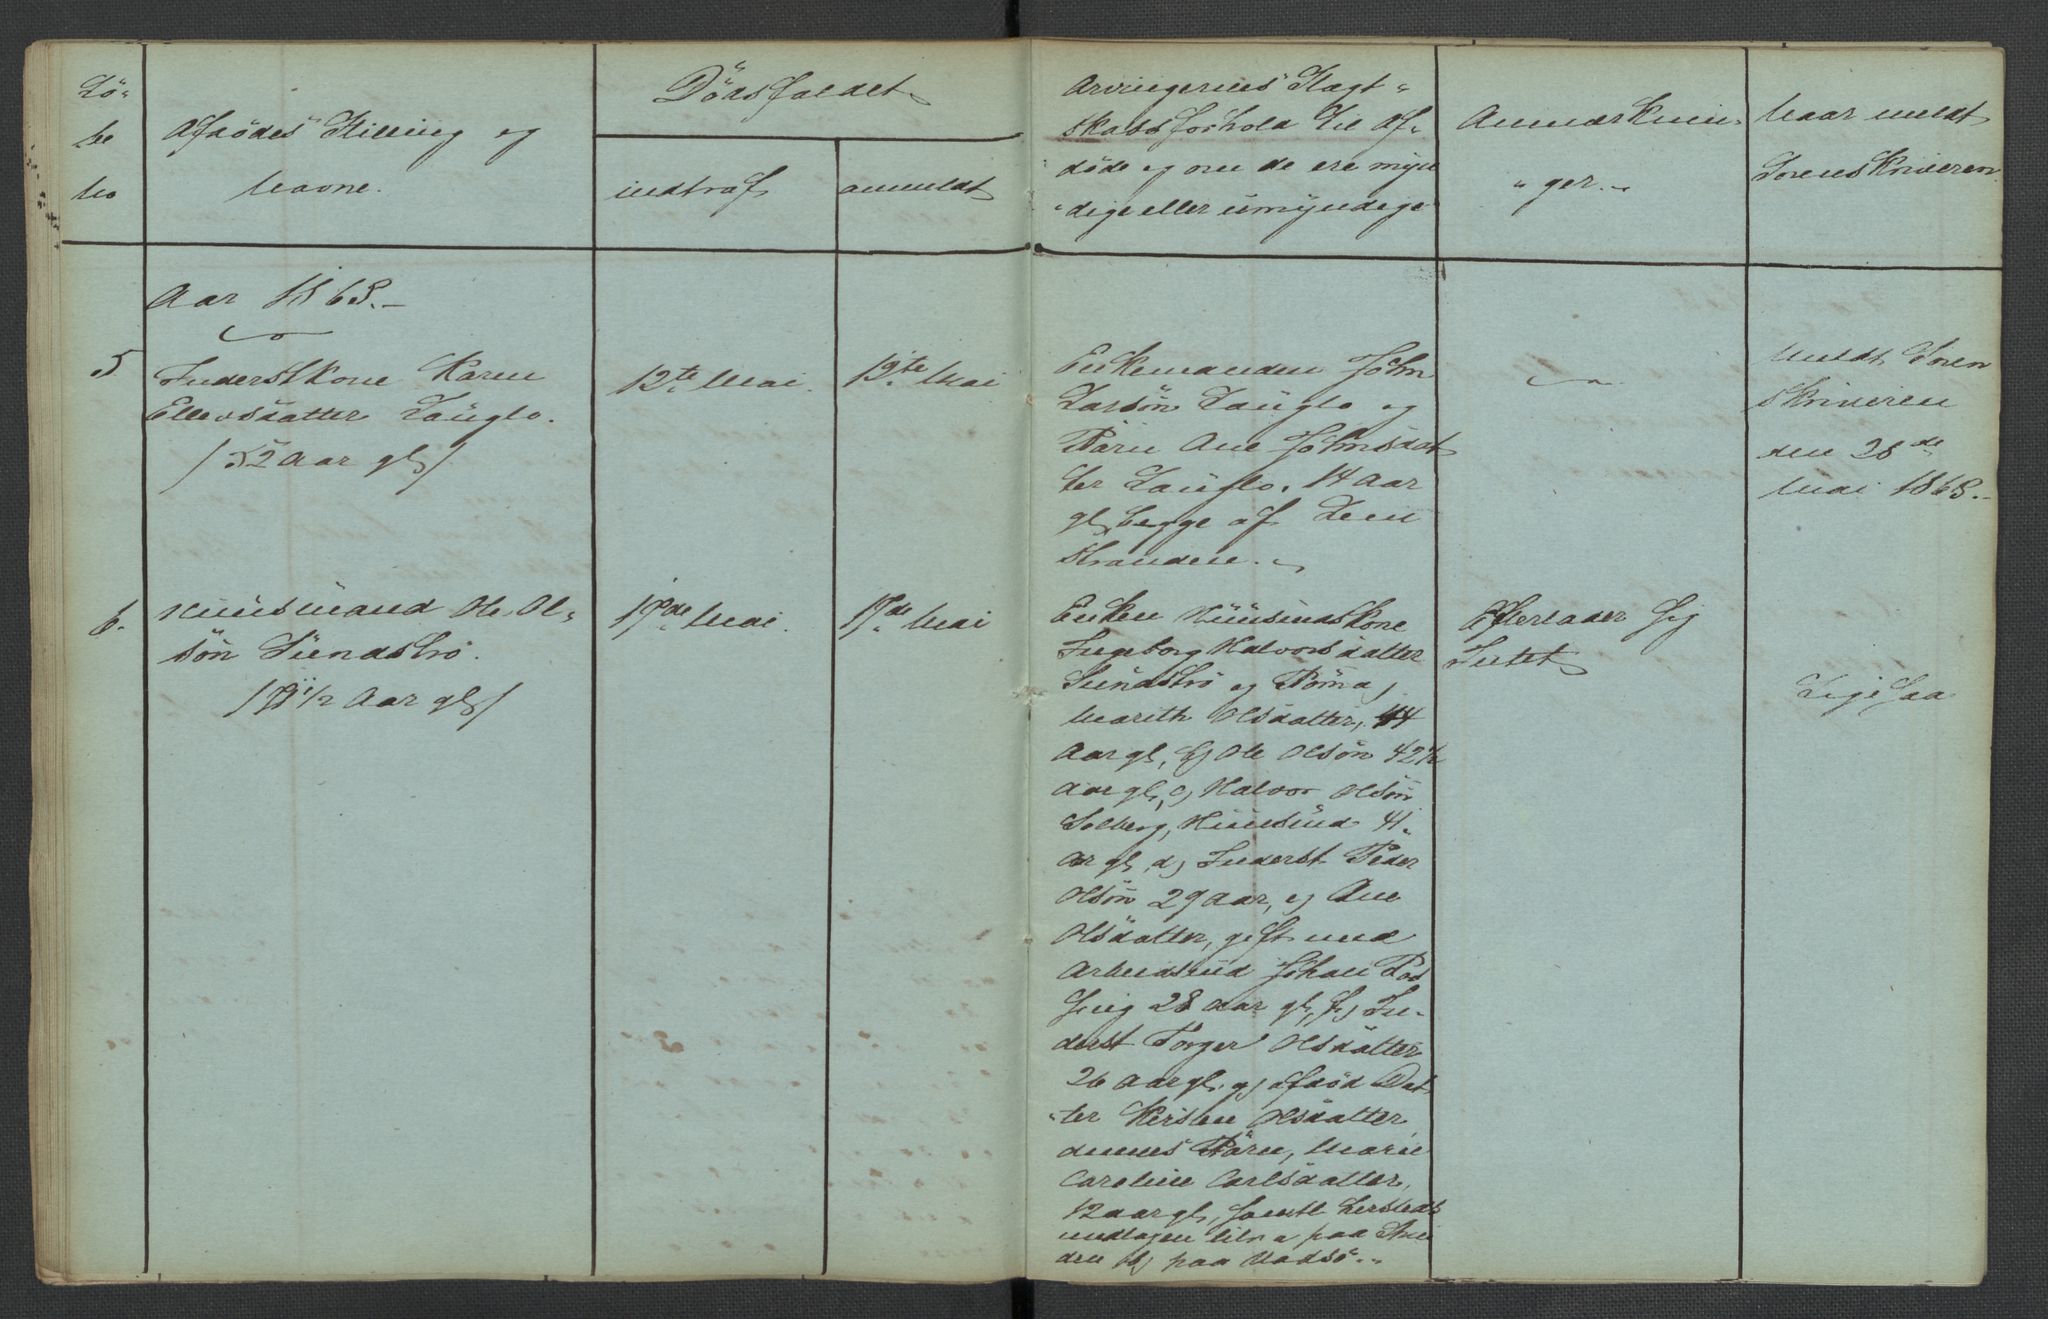 Lö-
be
No
Afdödes Stilling og
Navne.
Dödsfaldet
indtraf
anmeldt
Arvingernes Slagt-
skabsforhold til Af-
döde og om de ere myn
dige eller umyndige
Anmærknin
ger.
Naar meldt
Sorenskriveren
Aar 1868.
5
Inderstkone Karen
Ellevsdatter Lauglo.
/52 Aar gl/
12te Mai.
19te Mai
Enkemanden John
Larsön Lauglo og
Barn Ane Johnsdat
ter Lauglo. 14 Aar
gl, begge af Lein
stranden.
Meldt Soren
skriveren
den 28de
Mai 1868.
6.
Huusmand Ole Ol-
sön Sundströ.
1/2 Aar gl/
Mai.
Mai
Enken Huusmdskone
Ingeborg Halvorsdatter
Sundströ og Börn a,
Marith Olsdatter, 44
Aar gl, b, Ole Olsön 42 1/2
Aar gl, c, Halvor Olsön
Solberg, Huusmd 41.
Ar gl, d, Inderst Peder
Olsön 29 Aar, e, Ane
Olsdatter, gift med
Arbeidsmd Johan
28 Aar gl, f, In-
derst Olsdatter
26 Aar gl. g, afdöd Dat
ter Kirsten Olsdatter
dennes Barn, Marie
Caroline Carlsdatter,
12 Aar gl, samtl
undtagen litr a paa
den b, paa Vadsö.
Efterlader sig
Intet
Ligesaa